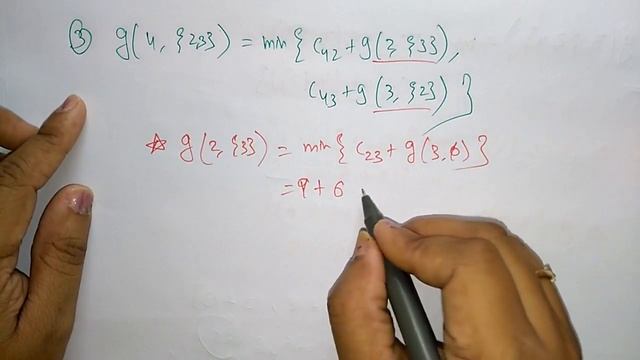 ③ g(4, {2,3}) = min { C42 + g(2, {3}),
C43 + g(3, {2}) }
☆ g(2, {3}) = min { C23 + g(3, ϕ) }
= 9 + 6